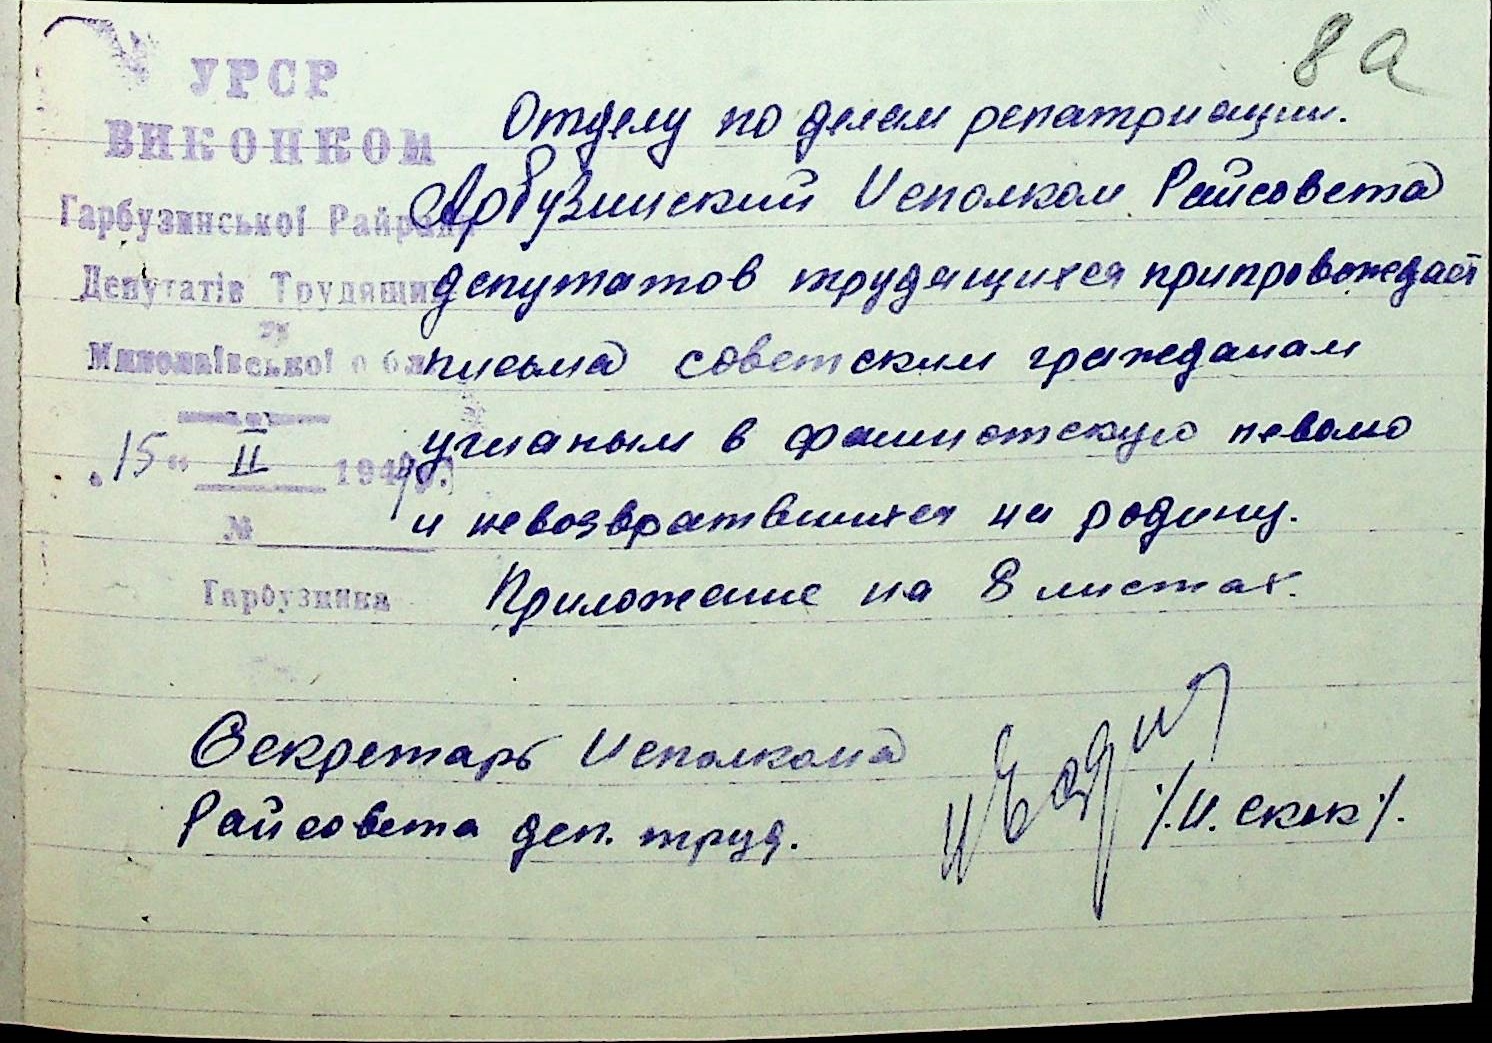 8а
УРСР
ВИКОНКОМ
Гарбузинської Райради
Депутатів Трудящих
Миколаївської обл.
"15" II 194
№
Гарбузинка
Отделу по делам репатриации.
Арбузинский Исполком Райсовета
депутатов трудящихся припровождает
письма советским гражданам
угнаным в фашистскую неволю
и невозвратвшихся на родину.
Приложение на 8 листах.
Секретарь Исполкома
Райсовета деп. труд.
/И. Скок/.